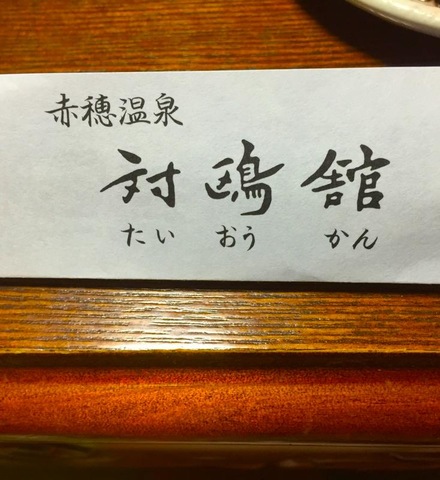 赤穂温泉
対鴎舘
たい おう かん